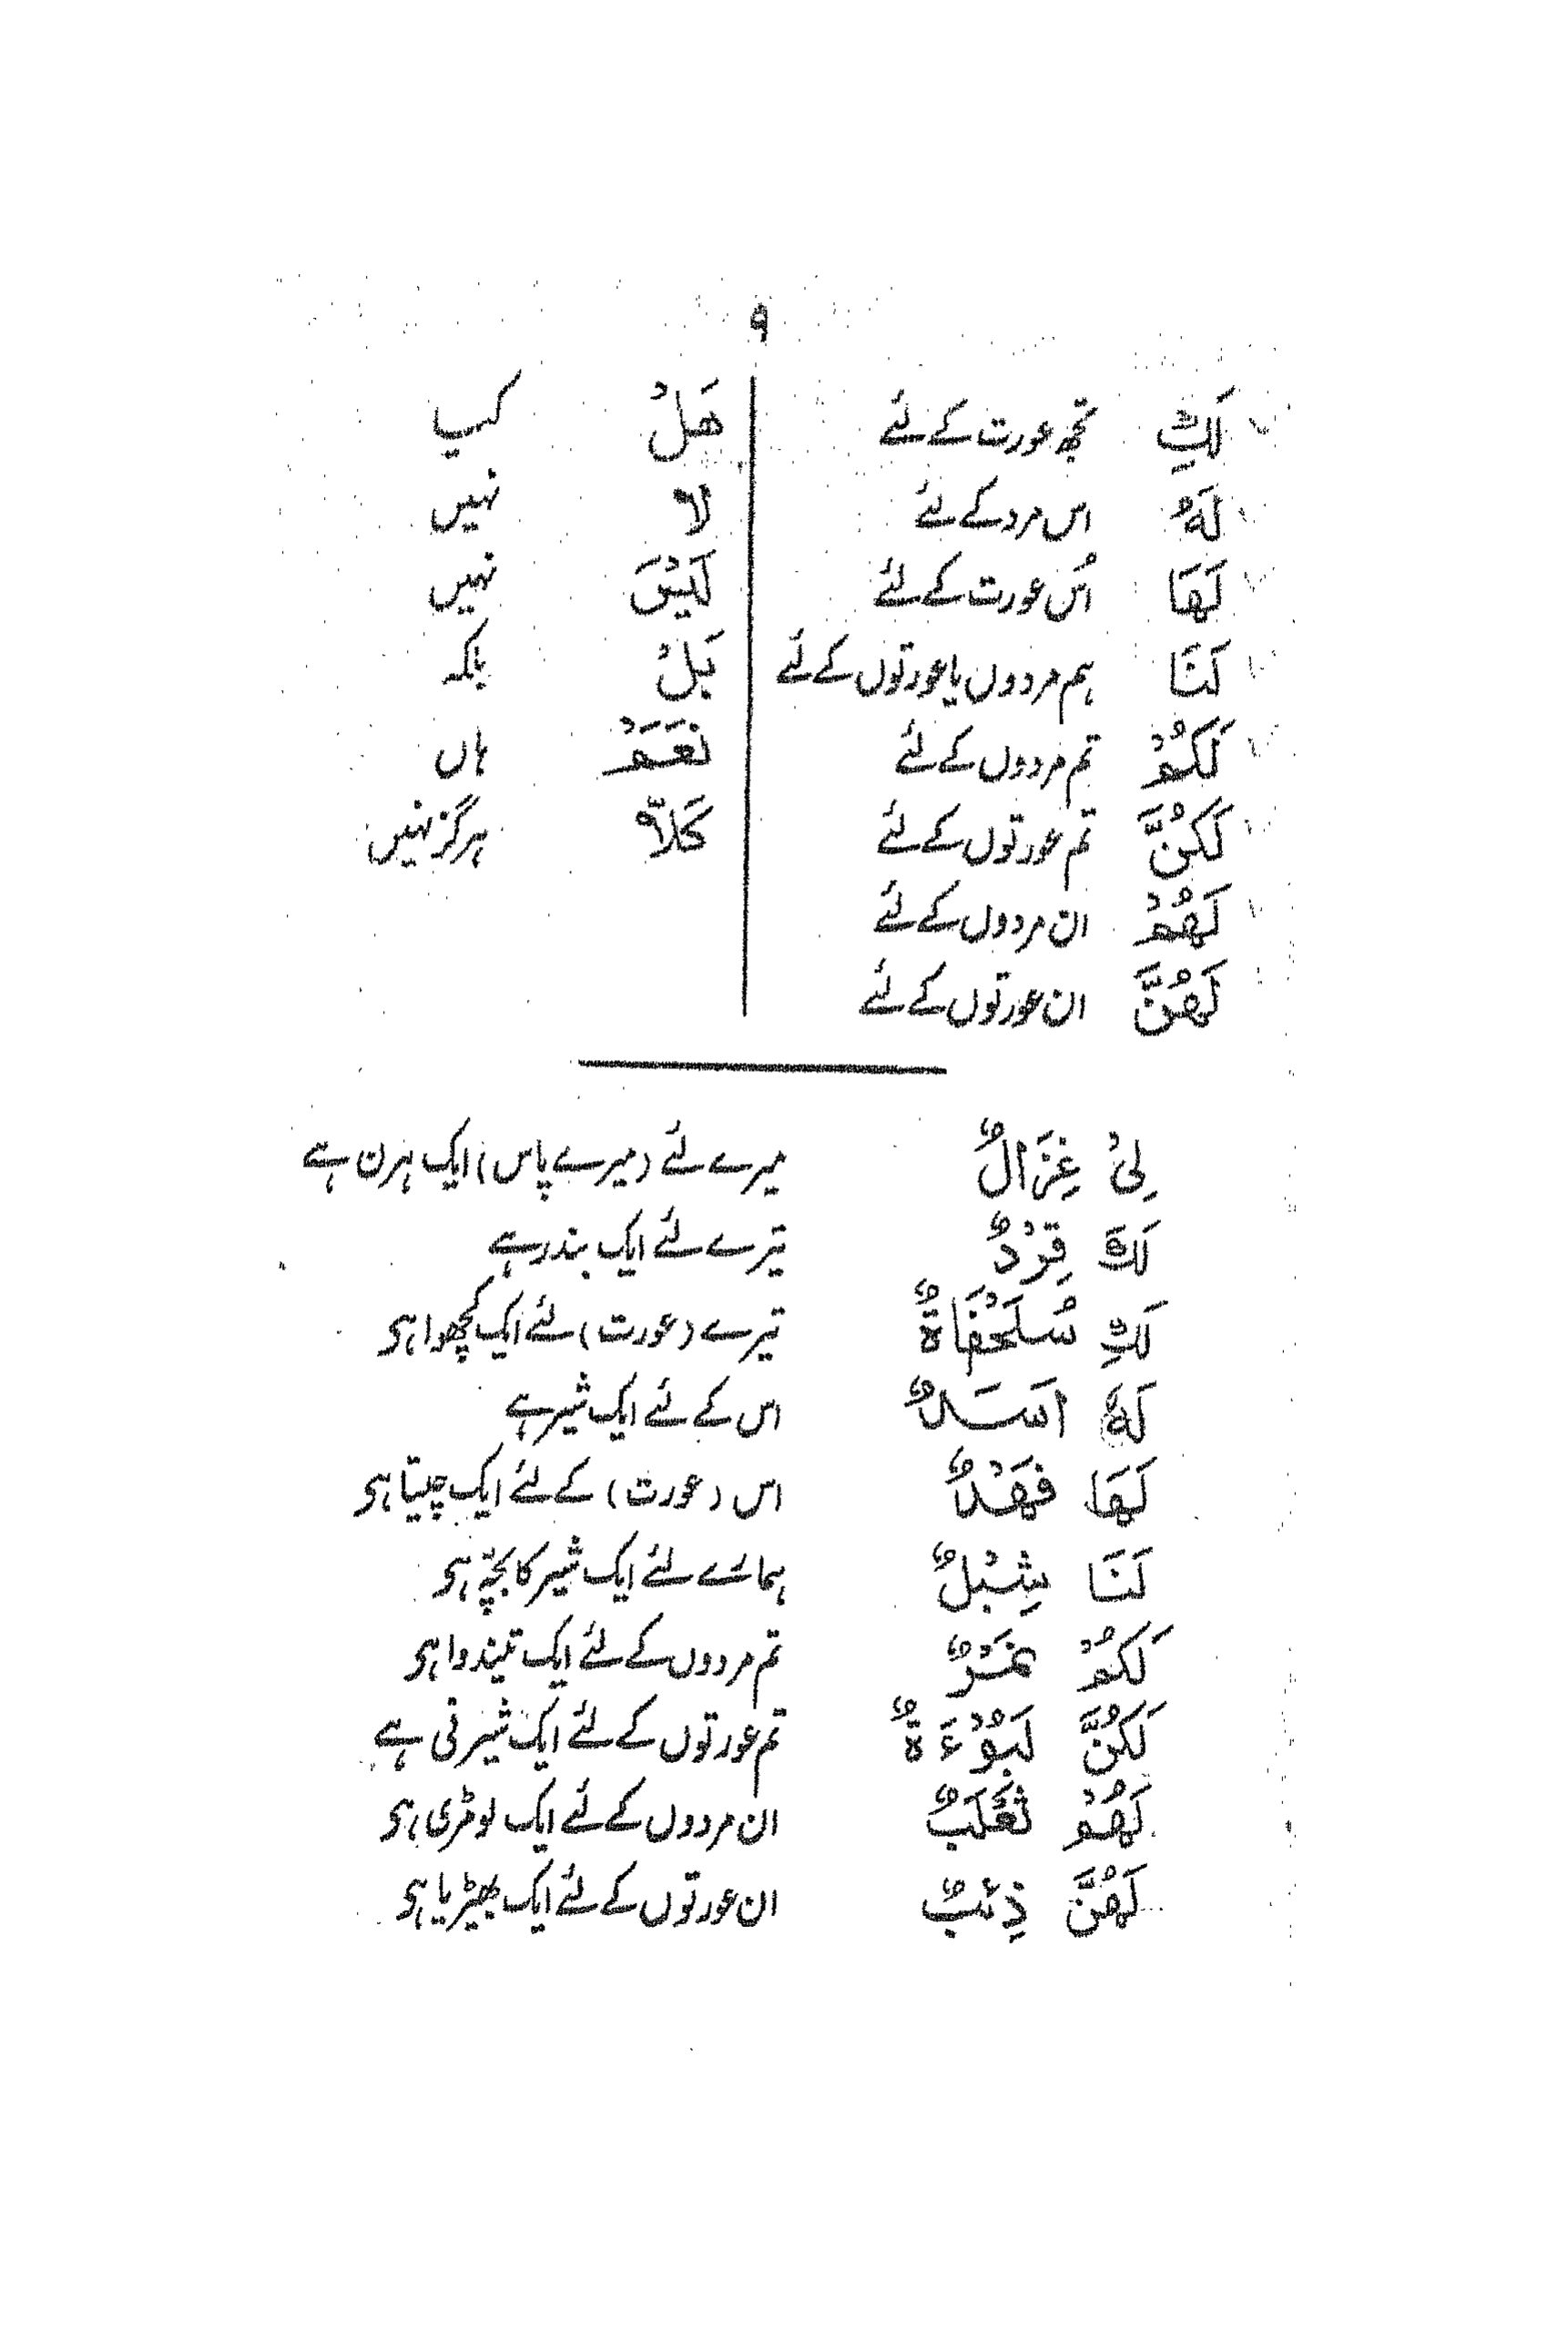 ۹
لَكِ تجھ عورت کے لئے
لَهُ اس مرد کے لئے
لَهَا اُس عورت کے لئے
لَنَا ہم مردوں یا عورتوں کے لئے
لَكُمْ تم مردوں کے لئے
لَكُنَّ تم عورتوں کے لئے
لَهُمْ ان مردوں کے لئے
لَهُنَّ ان عورتوں کے لئے
هَلْ کیا
لا نہیں
لَيْسَ نہیں
بَلْ بلکہ
نَعَمْ ہاں
كَلَّا ہرگز نہیں
لِيْ غِزَالٌ میرے لئے (میرے پاس) ایک ہرن ہے
لَكَ قِرْدٌ تیرے لئے ایک بندر ہے
لَكِ سُلَحْفَاةٌ تیرے (عورت) لئے ایک کچھوا ہی
لَهُ اَسَدٌ اس کے لئے ایک شیر ہے
لَهَا فَهْدٌ اس (عورت) کے لئے ایک چیتا ہی
لَنَا شِبْلٌ ہمارے لئے ایک شیر کا بچّہ ہی
لَكُمْ نَمْرٌ تم مردوں کے لئے ایک تیندوا ہی
لَكُنَّ لَبُوْءَةٌ تم عورتوں کے لئے ایک شیرنی ہے
لَهُمْ ثَعْلَبٌ ان مردوں کے لئے ایک لومڑی ہی
لَهُنَّ ذِئبٌ ان عورتوں کے لئے ایک بھیڑیا ہی